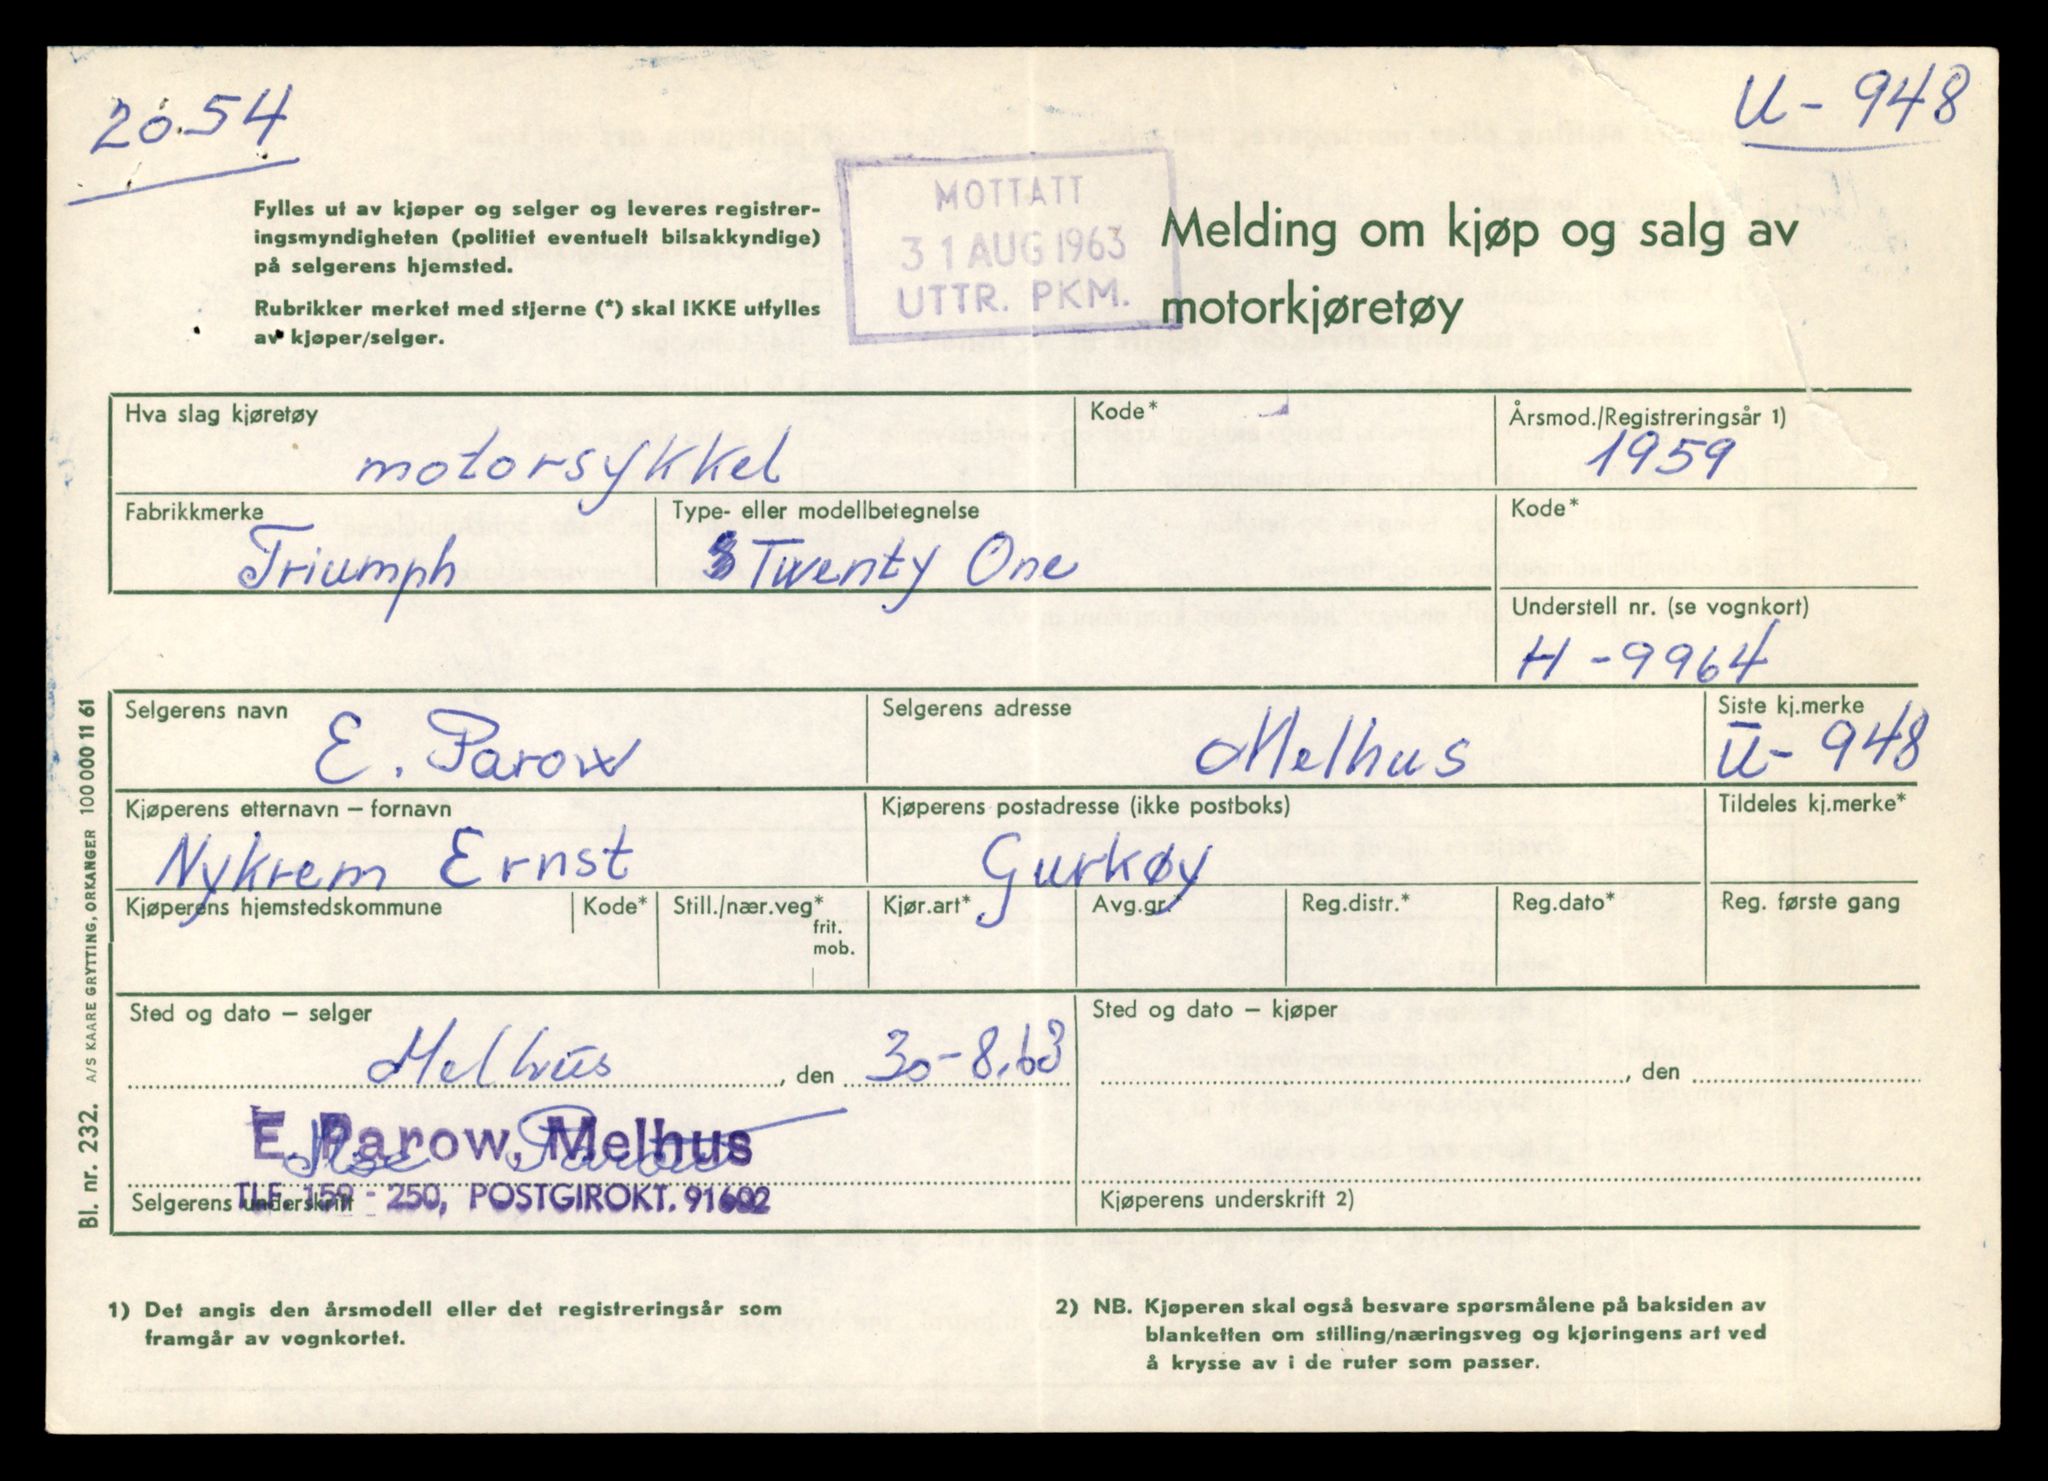 20.54
U - 948
Fylles ut av kjøper og selger og leveres registrer-
ingsmyndigheten (politiet eventuelt bilsakkyndige)
på selgerens hjemsted.
Rubrikker merket med stjerne (*) skal IKKE utfylles
av kjøper/selger.
MOTTATT
31 AUG 1963
UTTR. PKM.
Melding om kjøp og salg av
motorkjøretøy
Hva slag kjøretøy
motorsykkel
Kode*
Årsmod./Registreringsår 1)
1959
Fabrikkmerke
Triumph
Type- eller modellbetegnelse
Twenty One
Kode*
Understell nr. (se vognkort)
H - 9964
Selgerens navn
E. Parow
Selgerens adresse
Melhus
Siste kj.merke
U - 948
Kjøperens etternavn – fornavn
Nykrem Ernst
Kjøperens postadresse (ikke postboks)
Gurkøy
Tildeles kj.merke*
Kjøperens hjemstedskommune
Kode*
Still./nær.veg*
frit.
mob.
Kjør.art*
Avg.gr.*
Reg.distr.*
Reg.dato*
Reg. første gang
Sted og dato – selger
Melhus, den 30-8.63
Sted og dato – kjøper
, den
E. Parow, Melhus
TLF. 159 - 250, POSTGIROKT. 91602
Selgerens underskrift
Kjøperens underskrift 2)
1) Det angis den årsmodell eller det registreringsår som
framgår av vognkortet.
2) NB. Kjøperen skal også besvare spørsmålene på baksiden av
blanketten om stilling/næringsveg og kjøringens art ved
å krysse av i de ruter som passer.
Bl. nr. 232. A/S KAARE GRYTTING, ORKANGER 100 000 11 61